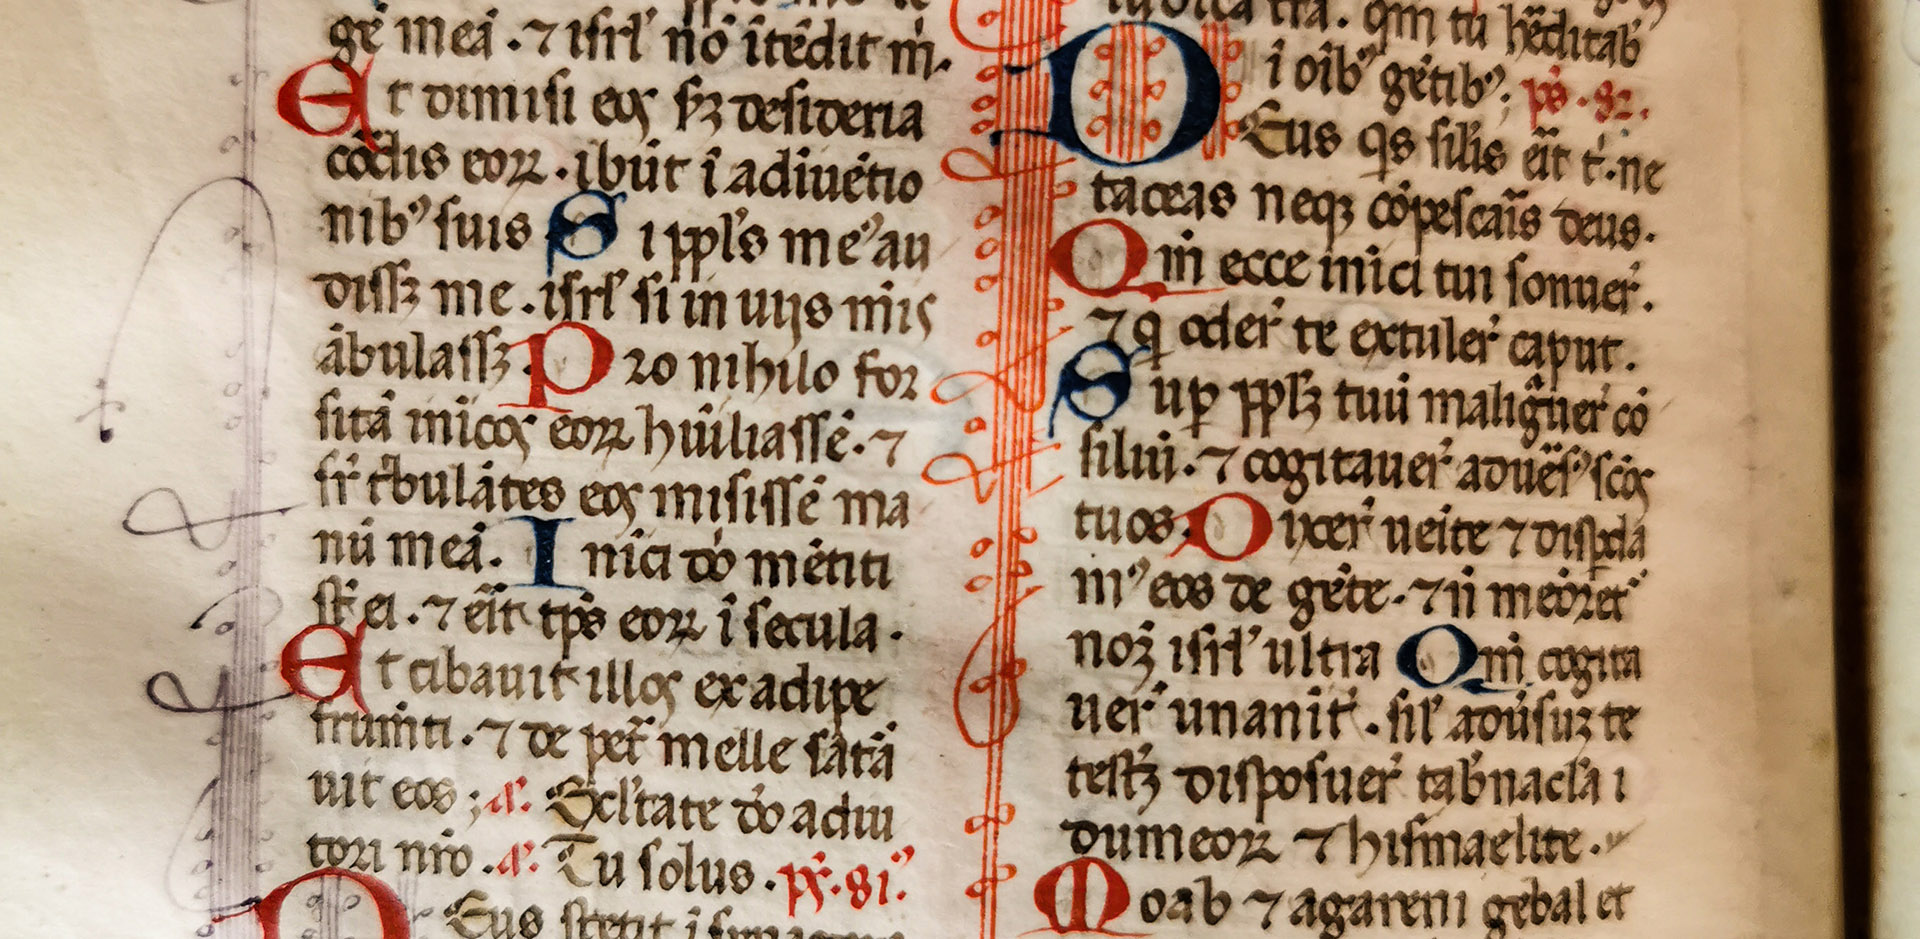 gē meā . ⁊ isrl' nō ītēdit m̄.
Et dimisi eos sꝫ desideria
cōdis eoꝝ . ibūt ī adiuētio
nibꝰ suis Si ppl's meꝰ au
dissꝫ me . isrl' si in uijs mīs
ābulassꝫ. Pro nihilo for
sitā inīcos eoꝝ hūiliassē . ⁊
sr̄ tͥbulātes eos misissē ma
nū meā. Inīci dō mētiti
st̄ ei . ⁊ eīt tp̄s eoꝝ ī secula .
Et cibauit illos ex adipe
frumīti . ⁊ de pet̄ melle satā
uit eos ; a͞. Excl'tate dō adiu
tori nr̄o . a͞. Tu solus . ps̄ . 81.
Deus stetit ī
tra . qm̄ tu hēditab
ī oībꝰ gētibꝰ; ps̄ . 82.
Deus q̄s sil'is eīt t' . ne
taceas neqꝫ cōpescaīs deus .
Qm̄ ecce inīci tui sonuer̄ .
⁊ q̄ oder̄ te extuler̄ caput .
Suꝑ pplꝫ tuū malīguer̄ cō
siliū . ⁊ cogitauer̄ aduēsꝰ sc̄os
tuos. Dixer̄ ueīte ⁊ disꝑdā
mꝰ eos de gēte . ⁊ n̄ meōret̄
noꝫ isrl' ultra Qm̄ cogita
uer̄ unanīt̄ . sil' adūsuꝫ te
testꝫ disposuer̄ tab̄nacl'a i
dumeoꝝ ⁊ hismaelite .
Moab ⁊ agareni gebal et